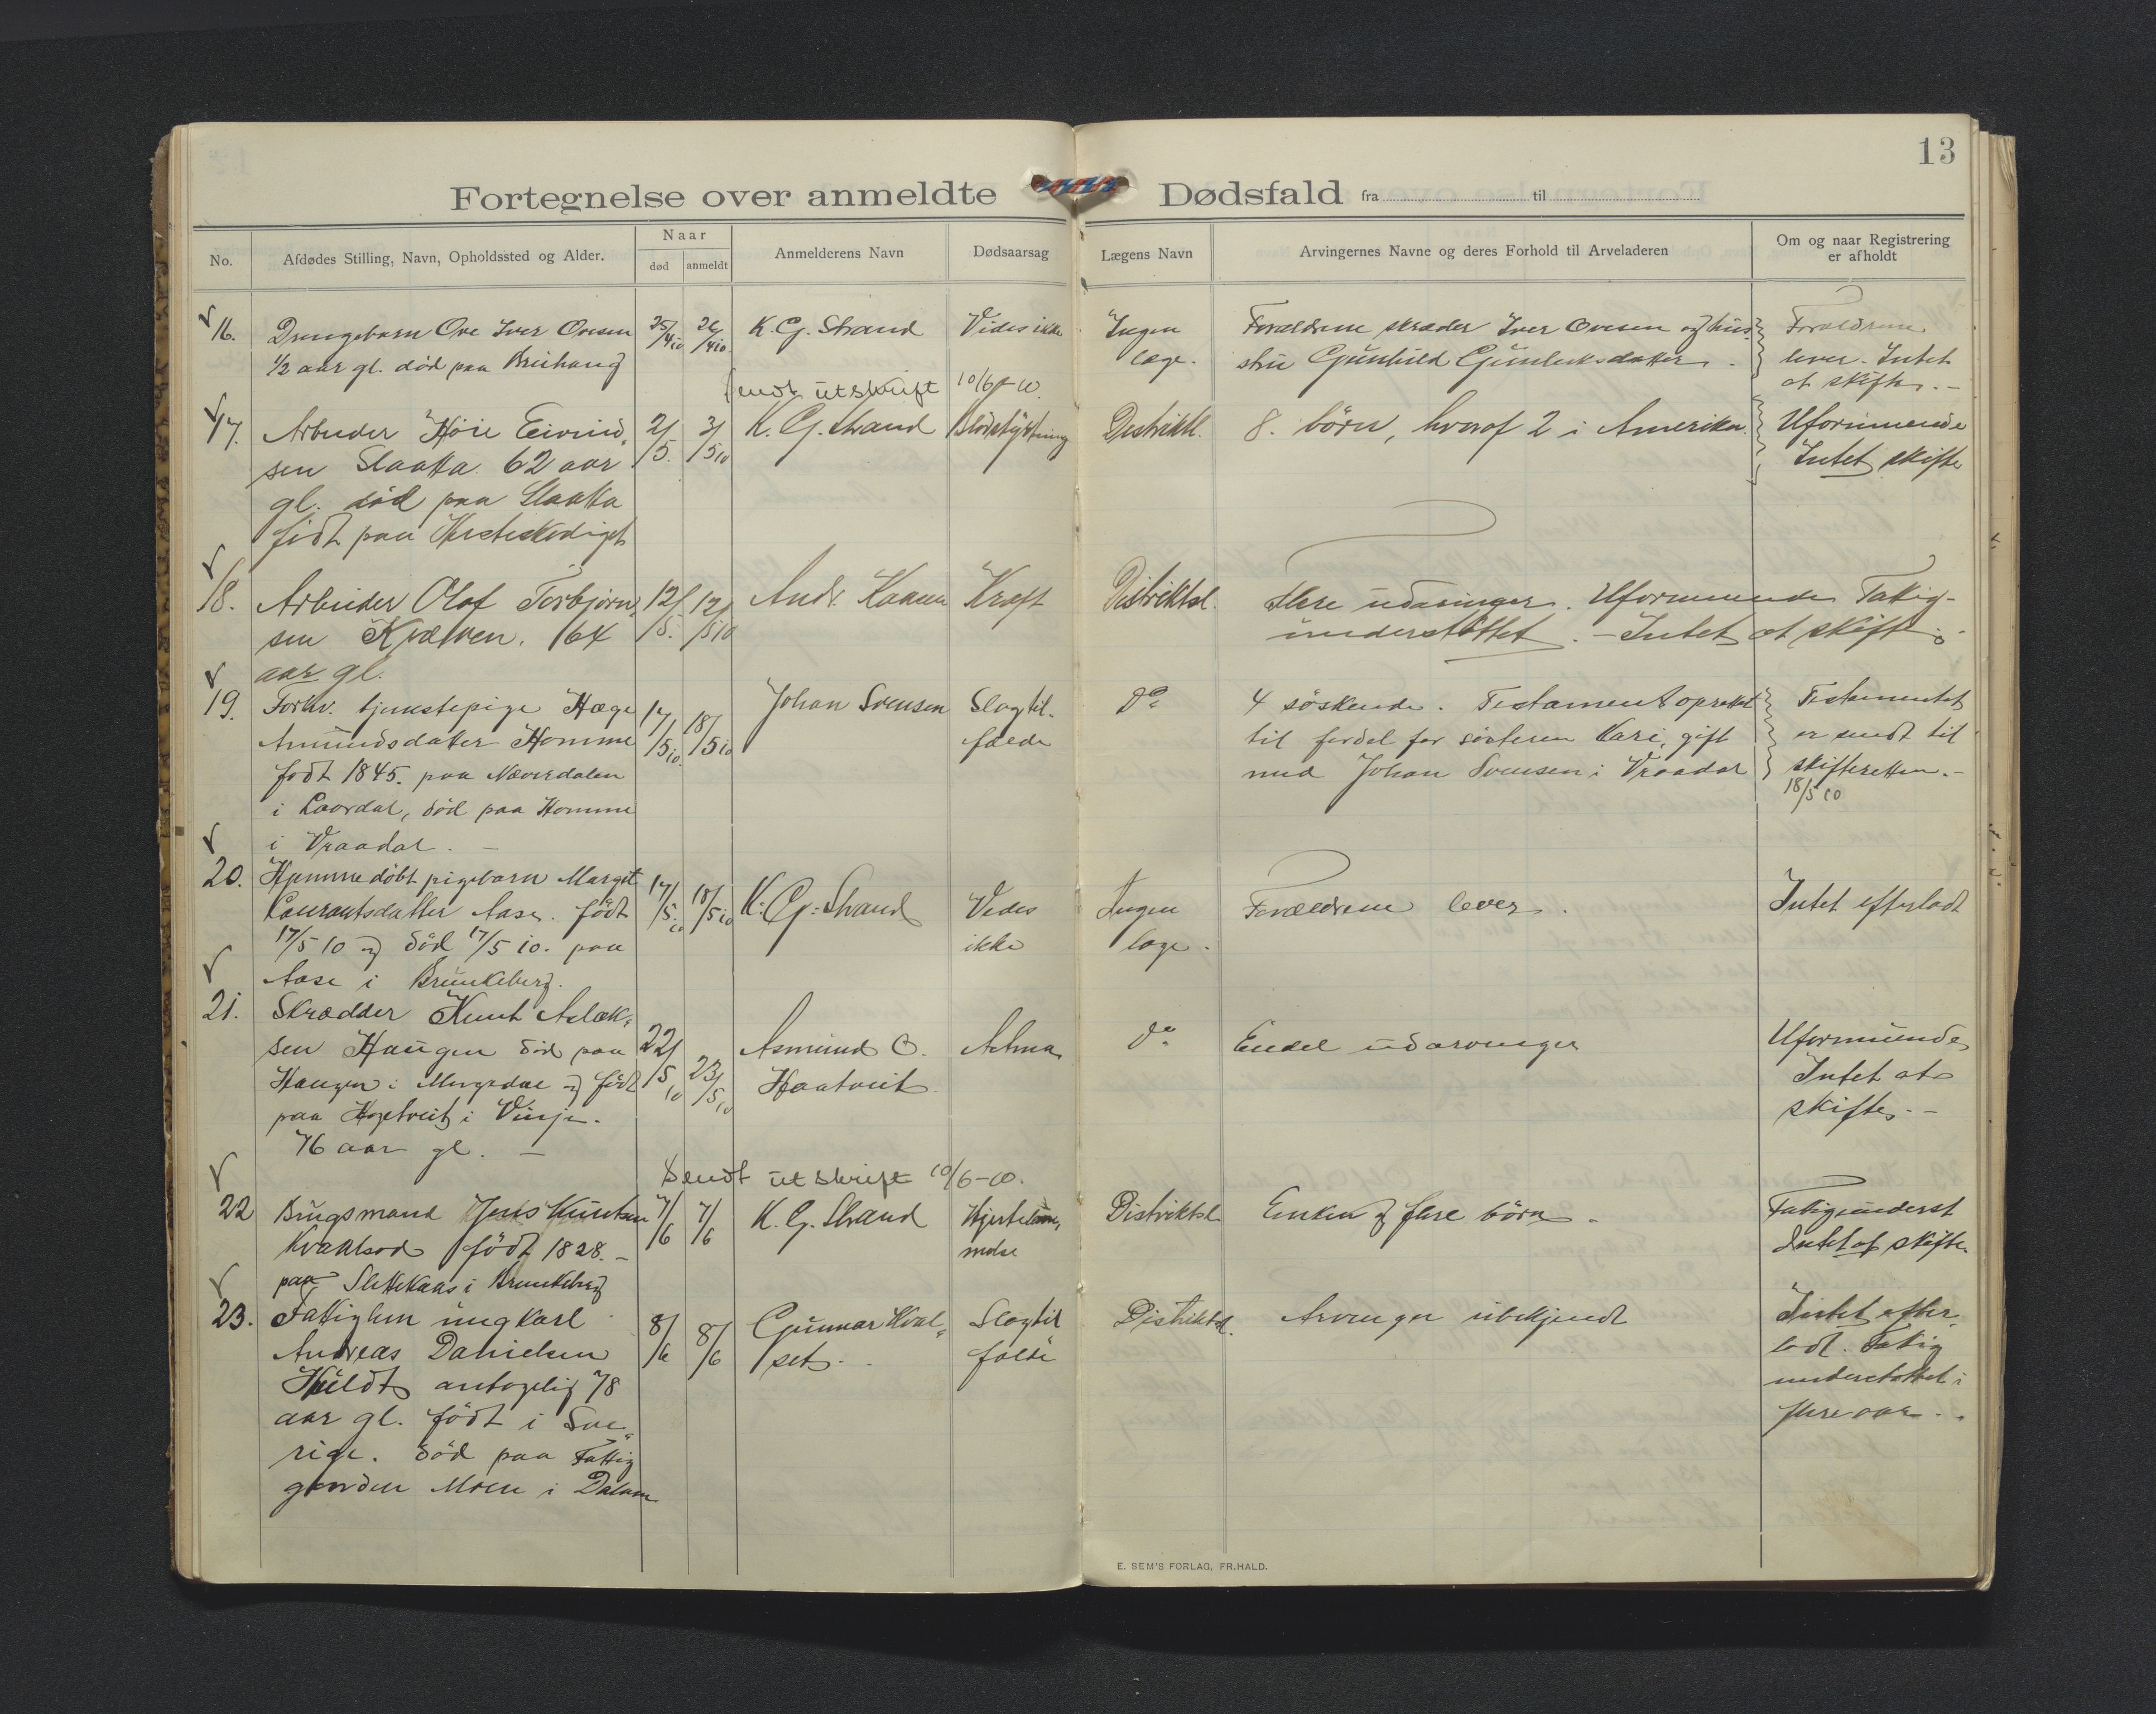 13
Fortegnelse over anmeldte Dødsfald fra til
No.
Afdødes Stilling, Navn, Opholdssted og Alder.
Naar
død anmeldt
Anmelderens Navn
Dødsaarsag
Lægens Navn
Arvingernes Navne og deres Forhold til Arveladeren
Om og naar Registrering
er afholdt
16. Drengebarn Ove Iver Ovesen 25/4 10 26/4 10 K. G. Strand Vides ikke Ingen Forældrene skræder Iver Ovesen og hus- Forældrene
1/2 aar gl. död paa læge. stru Gunhild lever. Intet
at skifte. -
Sendt utskrift 10/6 - 10.
17. Arbeider Eivind- 2/5. 3/5 10 K. G. Strand Blodstyrtning Distriktl. 8. börn, hvoraf 2 i Amerika. Uformuende
sen Slaatta. 62 aar Intet skifte
gl. död paa Slaatta
födt paa
18. Arbeider Olaf Torbjörn- 12/5. 12/5 10 Andr. Kræft Distriktsl. Flere udarvinger. Uformuende Fattig-
sen 64 understöttet. - Intet at skifte.
aar gl.
19. Forhv. tjenestepige Hæge 17/5 10. 18/5 10 Johan Svensen Slagtil- Do 4 söskende. Testament oprettet Testamentet
Amundsdatter Homme fælde til fordel for sösteren Kari, gift er sendt til
födt 1845. paa Næverdalen med Johan Svensen i Vraadal skifteretten. -
i Laardal, död paa Homme 18/5 10
i Vraadal. -
20. Hjemmedöbt pigebarn Margit 17/5. 10 18/5 10 K. G. Strand Vides Ingen Forældrene lever. Intet efterladt
Laurantsdatter Aase. födt ikke læge.
17/5 10 og död 17/5 10. paa
Aase i Brunkeberg.
21. Skrædder Knut Aslak- 22/5 10 23/5 10 Asmund O. Astma Do Endel udarvinger Uformuende
sen Haugen död paa Haatveit Intet at
Haugen i Morgedal og födt skifte. -
paa i Vinje.
76 aar gl. -
Sendt utskrift 10/6 - 10.
22 Brugsmand Jens Knutsen 7/6 7/6 K. G. Strand Hjertelam- Distriktsl. Enken og flere börn. Fattigunderst
födt 1828. - melse Intet at skifte.
paa Slettekaas i Brunkeberg
23. Fattiglem ungkarl 8/6 8/6 Gunnar Kval- Slagtil Distriktsl. Arvinger ubekjendt Intet efter-
Andreas Danielsen set. fælde ladt. Fattig
antagelig 78 understöttet i
aar gl. födt i Sve- flere aar. -
rige. död paa Fattig
gaarden Moen i Dalane
E. SEM'S FORLAG, FR.HALD.